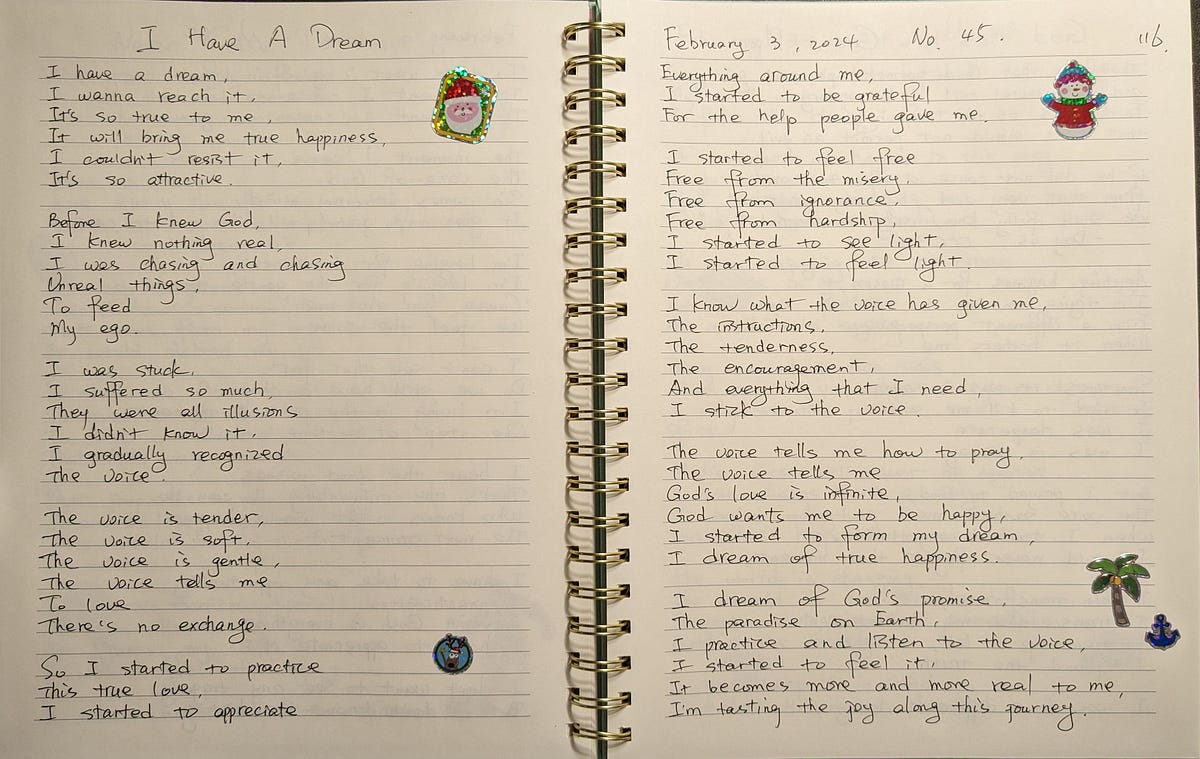 I Have A Dream
I have a dream,
I wanna reach it,
It's so true to me
It will bring me true happiness,
I couldn't resist it,
It's so attractive.
Before I knew God,
I knew nothing real,
I was chasing and chasing
Unreal things,
To feed
My ego.
I was stuck,
I suffered so much,
They were all illusions
I didn't know it,
I gradually recognized
The voice.
The voice is tender,
The voice is soft,
The voice is gentle,
The voice tells me
To love
There's no exchange.
So I started to practice
This true love,
I started to appreciate
February 3, 2024 No. 45. 116.
Everything around me,
I started to be grateful
For the help people gave me.
I started to feel free
Free from the misery,
Free from ignorance,
Free from hardship,
I started to see light,
I started to feel light.
I know what the voice has given me
The instructions,
The tenderness,
The encouragement,
And everything that I need,
I stick to the voice.
The voice tells me how to pray
The voice tells me
God's love is infinite,
God wants me to be happy,
I started to form my dream,
I dream of true happiness.
I dream of God's promise,
The paradise on Earth,
I practice and listen to the voice,
I started to feel it,
It becomes more and more real to me,
I'm tasting the joy along this journey.